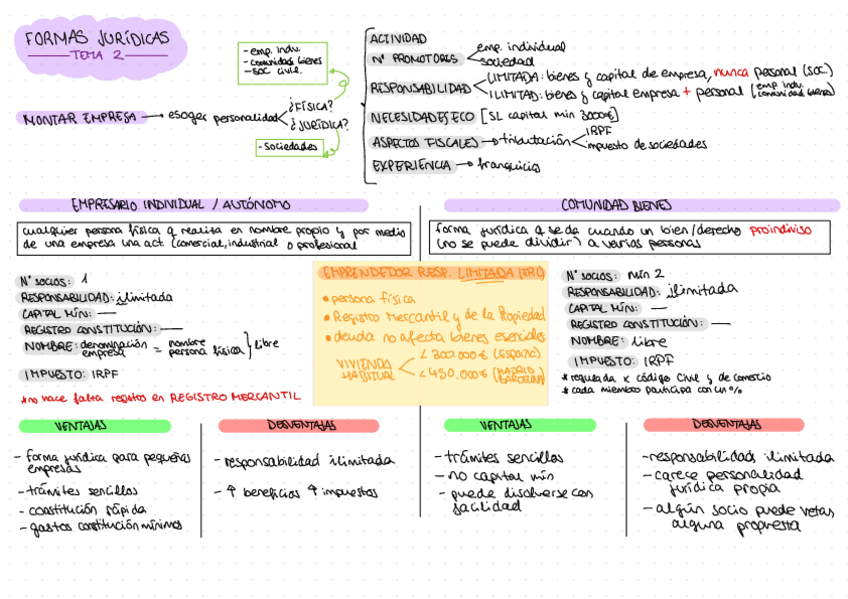 FORMAS JURÍDICAS
TEMA 2
- emp. indv.
- comunidad bienes
- soc civil.
MONTAR EMPRESA → escoger personalidad
¿FÍSICA?
¿JURÍDICA?
- Sociedades
ACTIVIDAD
Nº PROMOTORES
emp. individual
sociedad
RESPONSABILIDAD
LIMITADA: bienes y capital de empresa, nunca personal (SOC.)
ILIMITAD: bienes y capital empresa + personal (emp indv. comunidad bienes)
NECESIDADES ECO [SL capital min 3000€]
ASPECTOS FISCALES → tributación
IRPF
impuesto de sociedades
EXPERIENCIA → franquicia
EMPRESARIO INDIVIDUAL / AUTÓNOMO
cualquier persona física q realiza en nombre propio y por medio
de una empresa una act. (comercial, industrial o profesional
Nº SOCIOS: 1
RESPONSABILIDAD: ilimitada
CAPITAL MÍN: —
REGISTRO CONSTITUCIÓN: —
NOMBRE: denominación empresa = nombre persona física } libre
IMPUESTO: IRPF
*no hace falta registro en REGISTRO MERCANTIL
EMPRENDEDOR RESP. LIMITADA (ERL)
• persona física
• Registro Mercantil y de la Propiedad
• deuda no afecta bienes esenciales
VIVIENDA HABITUAL
< 300.000€ (ESPAÑA)
< 450.000€ (MADRID BARCELONA)
COMUNIDAD BIENES
forma jurídica q se da cuando un bien/derecho proindiviso
(no se puede dividir) a varias personas
Nº SOCIOS: mín 2
RESPONSABILIDAD: ilimitada
CAPITAL MÍN: —
REGISTRO CONSTITUCIÓN: —
NOMBRE: libre
IMPUESTO: IRPF
* regulada x código civil y de comercio
* cada miembro participa con un %
VENTAJAS
- forma jurídica para pequeñas
empresas
- trámites sencillos
- constitución rápida
- gastos constitución mínimos
DESVENTAJAS
- responsabilidad ilimitada
- ↑ beneficios ↑ impuestos
VENTAJAS
- trámites sencillos
- no capital mín
- puede disolverse con
facilidad
DESVENTAJAS
- responsabilidad ilimitada
- carece personalidad
jurídica propia
- algún socio puede vetar
alguna propuesta